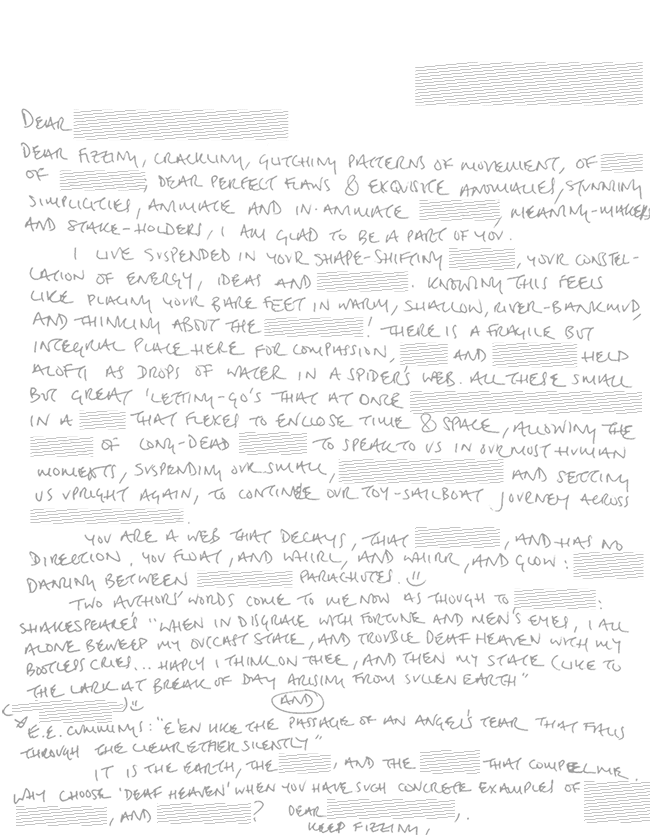 DEAR
DEAR FIZZING, CRACKLING, GLITCHING PATTERNS OF MOVEMENT, OF
OF , DEAR PERFECT FLAWS & EXQUISITE ANOMALIES, STUNNING
SIMPLICITIES, ANIMATE AND IN-ANIMATE , MEANING-MAKERS
AND STAKE-HOLDERS, I AM GLAD TO BE A PART OF YOU.
I LIVE SUSPENDED IN YOUR SHAPE-SHIFTING , YOUR CONSTEL-
LATION OF ENERGY, IDEAS AND . KNOWING THIS FEELS
LIKE PLACING YOUR BARE FEET IN WARM, SHALLOW, RIVER-BANK MUD,
AND THINKING ABOUT THE ! THERE IS A FRAGILE BUT
INTEGRAL PLACE HERE FOR COMPASSION, AND HELD
ALOFT, AS DROPS OF WATER IN A SPIDER'S WEB. ALL THESE SMALL
BUT GREAT 'LETTING-GO'S THAT AT ONCE
IN A THAT FLEXES TO ENCLOSE TIME & SPACE, ALLOWING THE
OF LONG-DEAD TO SPEAK TO US IN OUR MOST HUMAN
MOMENTS, SUSPENDING OUR SMALL, AND SETTING
US UPRIGHT AGAIN, TO CONTINUE OUR TOY-SAILBOAT JOURNEY ACROSS
.
YOU ARE A WEB THAT DECAYS, THAT , AND HAS NO
DIRECTION. YOU FLOAT, AND WHIRL, AND WHIRR, AND GLOW:
DANCING BETWEEN PARACHUTES.
TWO AUTHORS' WORDS COME TO ME NOW AS THOUGH TO :
SHAKESPEARE'S "WHEN IN DISGRACE WITH FORTUNE AND MEN'S EYES, I ALL
ALONE BEWEEP MY OUTCAST STATE, AND TROUBLE DEAF HEAVEN WITH MY
BOOTLESS CRIES... HAPLY I THINK ON THEE, AND THEN MY STATE (LIKE TO
THE LARK AT BREAK OF DAY ARISING FROM SULLEN EARTH"
( )
AND
E.E. CUMMINGS: "E'EN LIKE THE PASSAGE OF AN ANGEL'S TEAR THAT FALLS
THROUGH THE CLEAR ETHER SILENTLY"
IT IS THE EARTH, THE , AND THE THAT COMPEL ME.
WHY CHOOSE 'DEAF HEAVEN' WHEN YOU HAVE SUCH CONCRETE EXAMPLES OF
, AND ? DEAR ,
KEEP FIZZING,